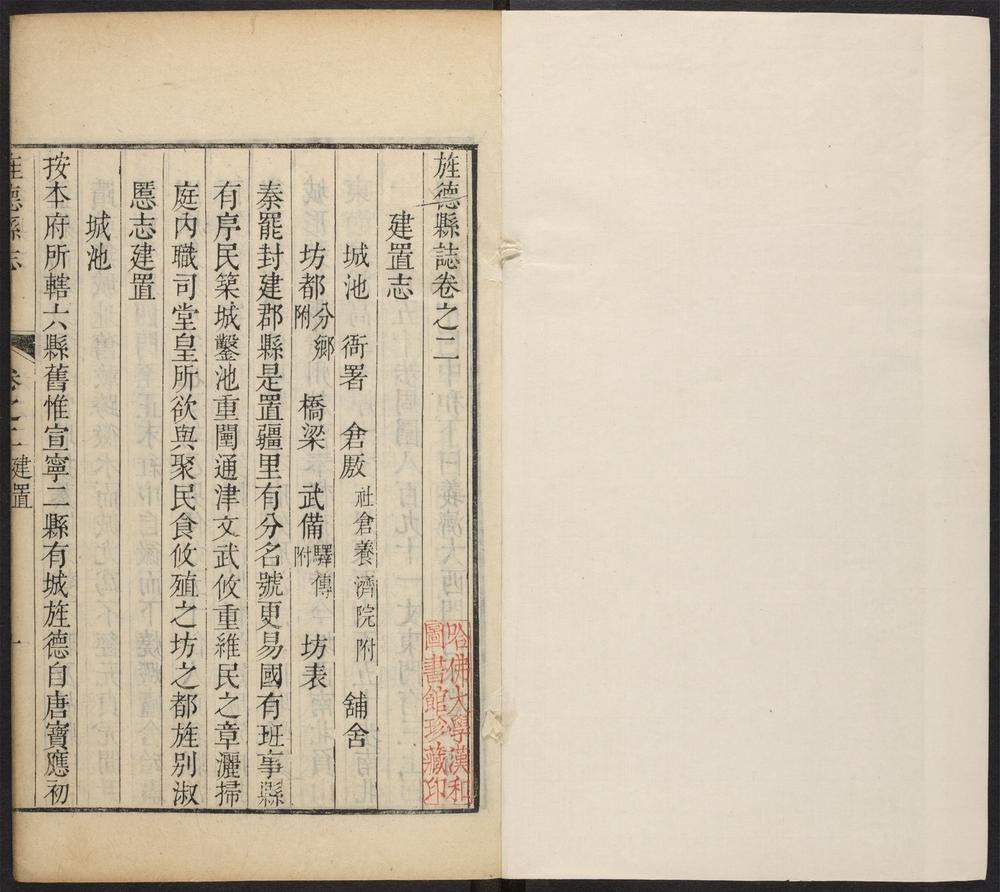 旌德縣誌卷之二
建置志
城池　衙署　倉厫社倉養濟院附　舖舍
坊都分鄉附　橋梁　武備驛傳附　坊表
秦罷封建郡縣是置疆里有分名號更易國有班事縣
有序民築城鑿池重闉通津文武攸重維民之章灑掃
庭內職司堂皇所欲與聚民食攸殖之坊之都旌別淑
慝志建置
城池
按本府所轄六縣舊惟宣寧二縣有城旌德自唐寶應初
旌德縣志　卷之二建置　一
哈佛大學漢和
圖書館珍藏印